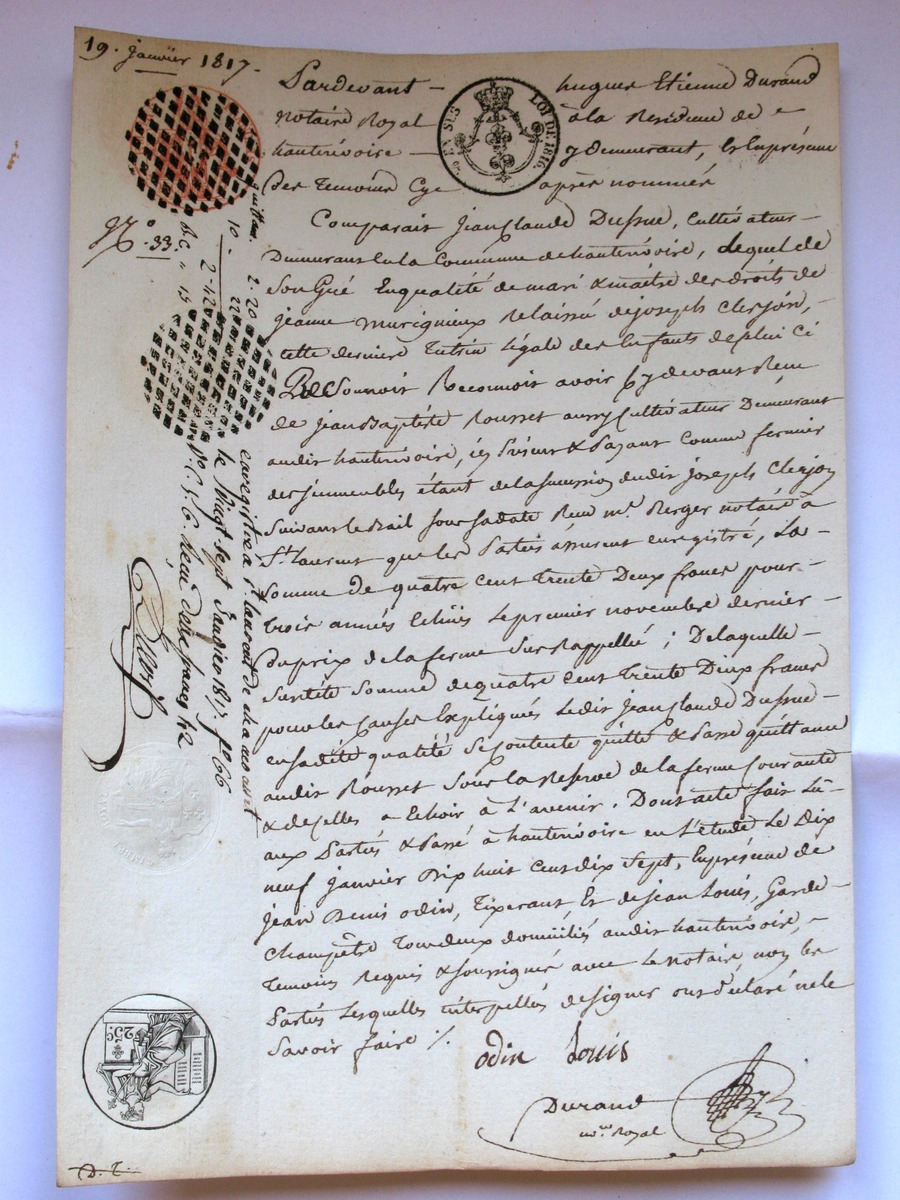 19. Janvïer 1817.
Pardevant hugues Etienne Durand
notaire Royal à la Residence de
hauterivoire y demeurant, En présence
des temoins Cy après nommés
Comparait Jean Claude Dussue, Cultivateur
Demeurant En la Commune de hauterivoire, lequel de
Son Gré En qualité de mari & maitre des droits de
jeanne murigneux Relaissé de joseph Clerjon,
cette derniere tutrice légale des Enfants de celui Ci
Reconnoit avoir Cy devant Reçu
de Jean Baptiste Rousset aussy Cultivateur Demeurant
audit hauterivoire, ici Présent & Payant Comme fermier
des jmmeubles étant de la succession dudit joseph Clerjon
Suivant le Bail Sous sa date Reçu me. Berger notaire à
St. laurent que les Parties assurent enregistré, La
Somme de quatre Cent trente Deux francs pour
trois années Echües Le premier novembre dernier
du prix de la ferme Sus Rappellée ; De laquelle
Susdite Somme de quatre Cent trente Deux francs
pour les Causes Expliqués Ledit Jean Claude Dussue
en sadite qualité Se Contente quitte & Passe quittance
audit Rousset Sous la Reserve de la ferme Courante
& de Celles a Echoir à L'avenir. Dont acte fait Lu
aux Parties & Passé à hauterivoire en L'étude Le Dix
neuf janvier Dix huit Cent dix Sept, En présence de
jean Denis odin, Tixerant Et de jean Louis, Garde
Champêtre tous deux domiciliés audit hauterivoire,
temoins Requis & soussignés avec Le notaire, non les
Parties Lesquelles interpellés de signer ont déclaré ne le
Savoir faire %.
odin Louis
Durand
nore Royal
No. 33.
quittance.
2-20
10 - 22
2-42
D.C. " 15
enregistré à St. laurent de chamousset
le vingt sept janvier 1817. fo 66
vo C. 5 & 6. Reçu deux francs
EN SUS
LOI DE 1816.
25c
D. T.